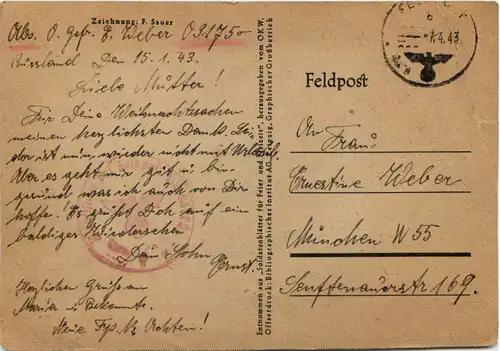 Zeichnung: F. Sauer
Abs. O. Gefr. E. Weber 03175
Russland Den 15.1.43.
Liebe Mutter!
Für Deine Weihnachtssachen
meinen herzlichsten Dank. Lei-
der ist nun wieder nicht mit Urlaub.
Aber es geht mir gut u. bin
gesund was ich auch von Dir
hoffe. Es grüßt Dich auf ein
baldiges Wiedersehen
Dein Sohn
Ernst.
Herzlichen Gruss an
Maria u. Bekannte.
Neue Fp. № Achten!
Entnommen aus „Soldatenblätter für Feier und Freizeit“, herausgegeben vom OKW.
Offsetdruck: Bibliographisches Institut AG. Leipzig, Graphischer Großbetrieb
4.43
Feldpost
An Frau:
Ernestine Weber
München W 55
Senftenauerstr 169.